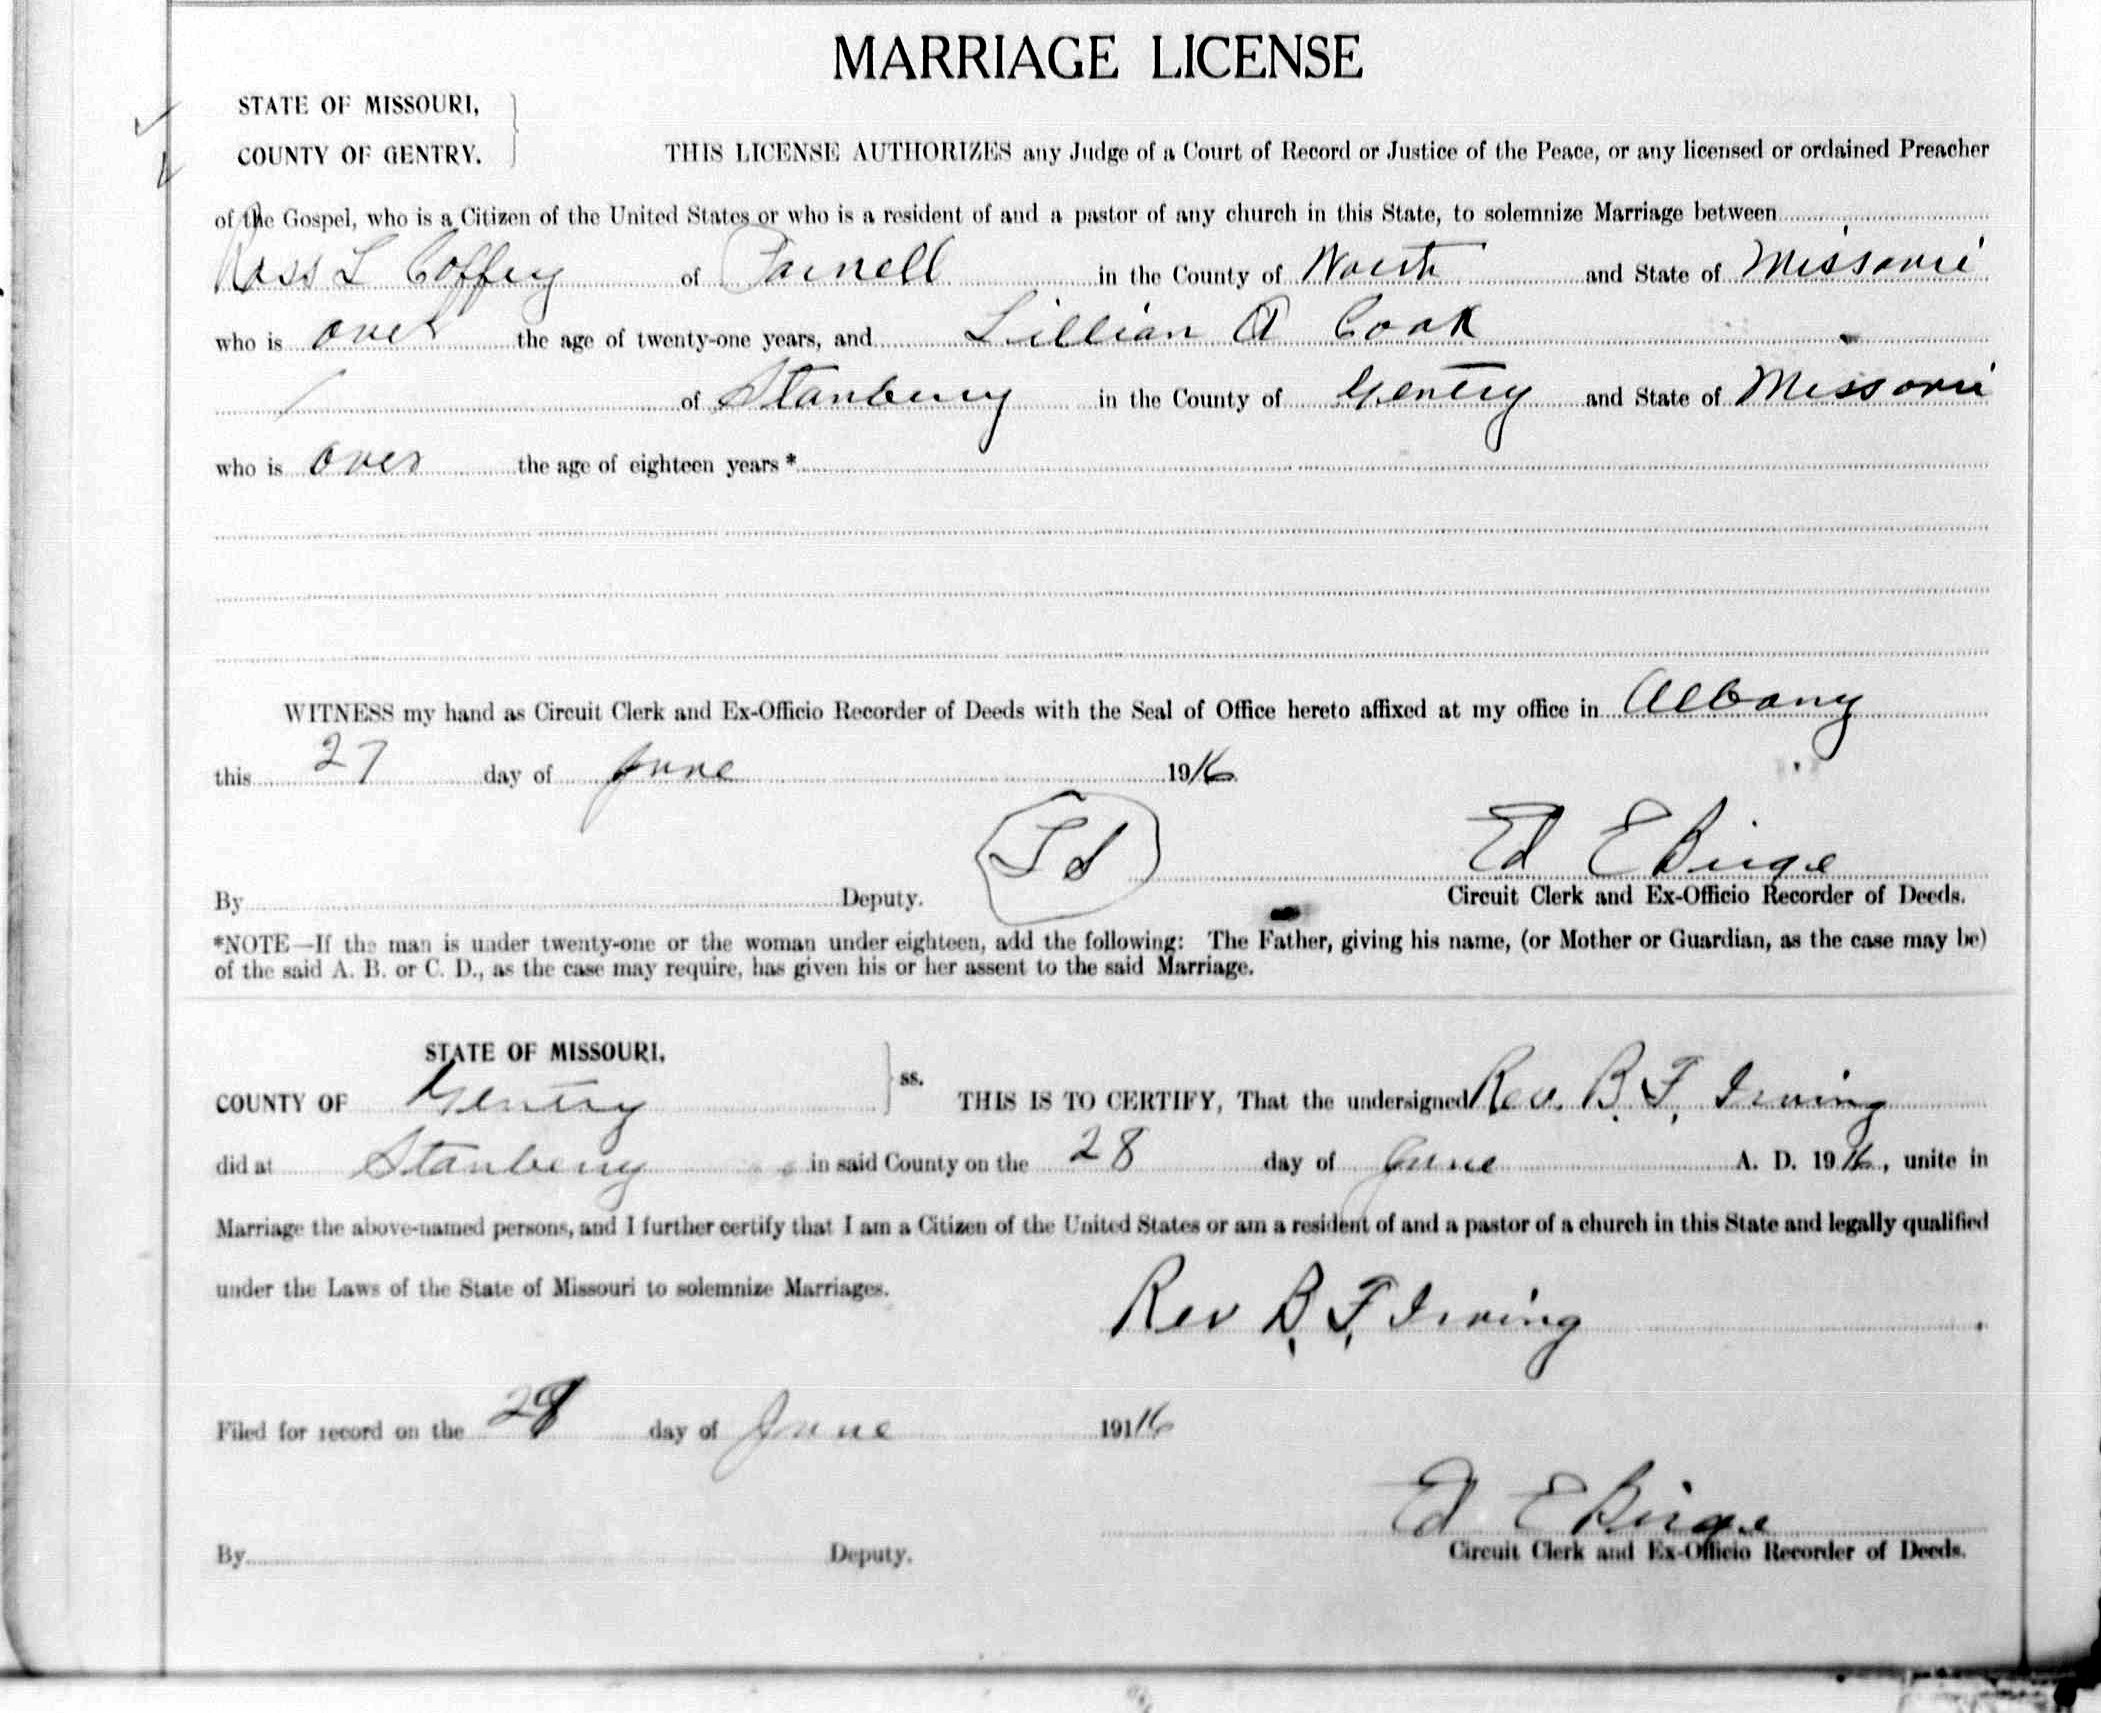 MARRIAGE LICENSE
STATE OF MISSOURI,
COUNTY OF GENTRY.
THIS LICENSE AUTHORIZES any Judge of a Court of Record or Justice of the Peace, or any licensed or ordained Preacher
of the Gospel, who is a Citizen of the United States or who is a resident of and a pastor of any church in this State, to solemnize Marriage between
Ross L Coffey of Parnell in the County of Worth and State of Missouri
who is over the age of twenty-one years, and Lillian A Cook
of Stanberry in the County of Gentry and State of Missouri
who is over the age of eighteen years *
WITNESS my hand as Circuit Clerk and Ex-Officio Recorder of Deeds with the Seal of Office hereto affixed at my office in Albany
this 27 day of June 1916
LS
Ed E Birge
By Deputy. Circuit Clerk and Ex-Officio Recorder of Deeds.
*NOTE—If the man is under twenty-one or the woman under eighteen, add the following: The Father, giving his name, (or Mother or Guardian, as the case may be)
of the said A. B. or C. D., as the case may require, has given his or her assent to the said Marriage.
STATE OF MISSOURI,
COUNTY OF Gentry ss. THIS IS TO CERTIFY, That the undersigned Rev. B. F. Irving
did at Stanberry in said County on the 28 day of June A. D. 1916, unite in
Marriage the above-named persons, and I further certify that I am a Citizen of the United States or am a resident of and a pastor of a church in this State and legally qualified
under the Laws of the State of Missouri to solemnize Marriages.
Rev B. F. Irving
Filed for record on the day of June 19116
Ed E Birge
By Deputy. Circuit Clerk and Ex-Officio Recorder of Deeds.